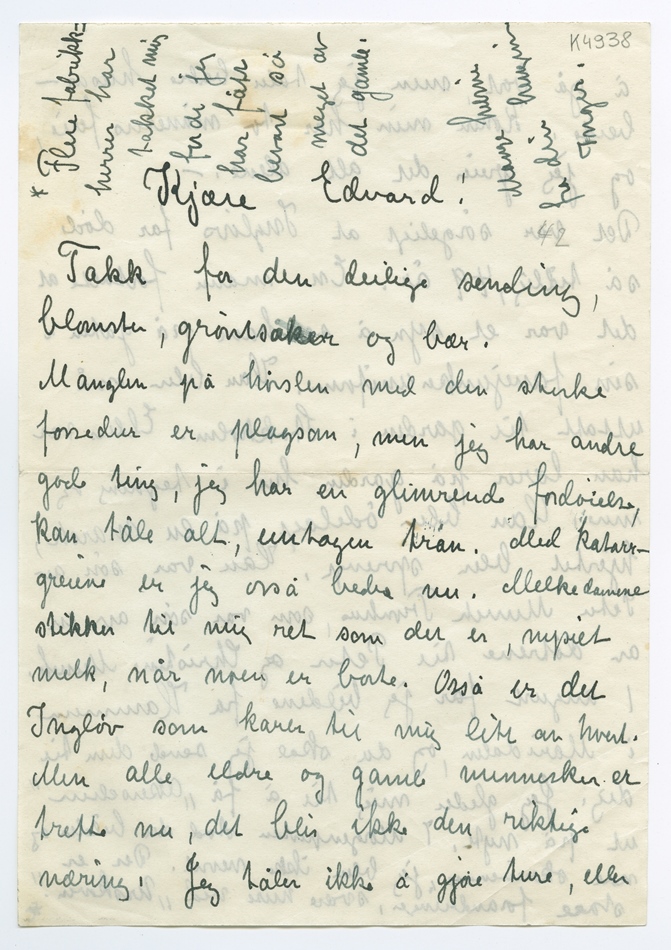 K4938
* Flere fabrikk-
herrer har
takket mig
fordi jeg
har fått
bevart så
meget av
det gamle.
Mange hilsner
fra din
Inger.
Kjære Edvard!
42
Takk for den deilige sending,
blomster, grøntsaker og bær.
Manglen på hørslen med den sterke
forsedur er plagsom, men jeg har andre
gode ting, jeg har en glimrende fordøielse,
kan tåle alt, undtagen trån. Med katarr-
greiene er jeg også bedre nu. Melkedamene
stikker til mig ret som det er, nysiet
melk, når noen er borte. Også er det
Ingløv som karer til mig litt av hvert.
Men alle eldre og gamle mennesker er
trette nu, det blir ikke den riktige
næring! Jeg tåler ikke å gjøre ture, eller